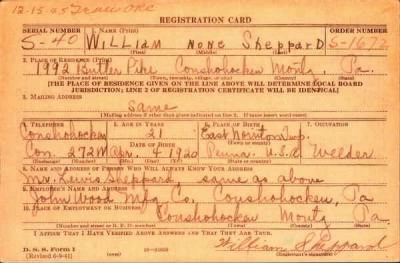 12-15-45
REGISTRATION CARD
SERIAL NUMBER 1. NAME (Print) ORDER NUMBER
S-40 WILLIAM NONE Sheppard S-1672
2. PLACE OF RESIDENCE (Print)
1992 Butler Pike Conshohocken Montg. Pa.
[THE PLACE OF RESIDENCE GIVEN ON THE LINE ABOVE WILL DETERMINE LOCAL BOARD
JURISDICTION; LINE 2 OF REGISTRATION CERTIFICATE WILL BE IDENTICAL]
3. MAILING ADDRESS
Same
[Mailing address if other than place indicated on line 2. If same insert word same]
4. TELEPHONE 5. AGE IN YEARS 6. PLACE OF BIRTH 7. OCCUPATION
Conshohocken 21 East Norriton Twp.
DATE OF BIRTH
Con. 272W Apr. 4 1920 Penna. U.S.A Welder
8. NAME AND ADDRESS OF PERSON WHO WILL ALWAYS KNOW YOUR ADDRESS
Mr. Lewis Sheppard same as above
9. EMPLOYER'S NAME AND ADDRESS
John Wood Mfg. Co. Conshohocken, Pa
10. PLACE OF EMPLOYMENT OR BUSINESS
Conshohocken Montg Pa.
I AFFIRM THAT I HAVE VERIFIED ABOVE ANSWERS AND THAT THEY ARE TRUE.
D. S. S. Form 1
(Revised 6-9-41)
William Sheppard